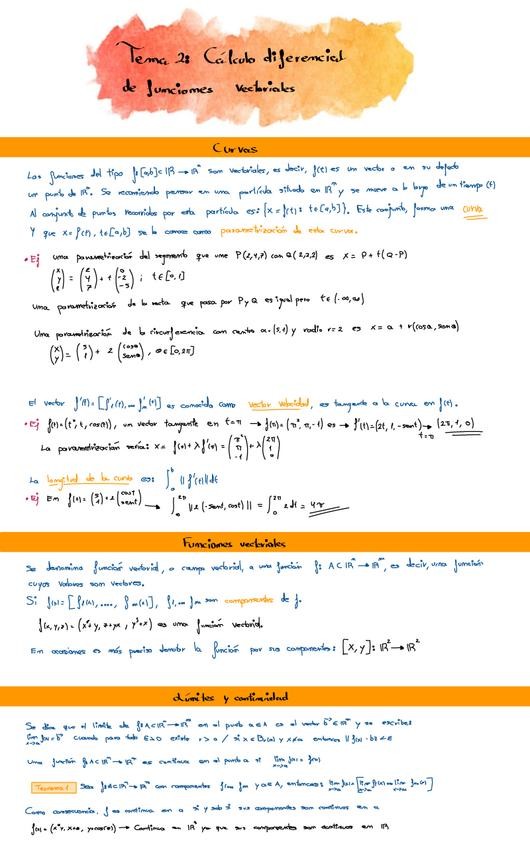 Tema 2: Cálculo diferencial
de funciones vectoriales
Curvas
Las funciones del tipo f:[a,b]⊂ℝ → ℝⁿ son vectoriales, es decir, f(t) es un vector o en su defecto
un punto de ℝⁿ. Se recomienda pensar en una partícula situada en ℝⁿ y se mueve a lo largo de un tiempo (t)
Al conjunto de puntos recorridos por esta partícula es: {x = f(t): t∈[a,b]}. Este conjunto, forma una curva
Y que x = f(t), t∈[a,b] se la conoce como parametrización de esta curva.
• Ej una parametrización del segmento que une P(2,4,7) con Q(2,2,2) es x = P + t(Q-P)
(x y z) = (2 4 7) + t (0 -2 -5) ; t∈[0,1]
Una parametrización de la recta que pasa por P y Q es igual pero t∈(-∞,∞)
Una parametrización de la circunferencia con centro a=(3,1) y radio r=2 es x = a + r(cosθ, senθ)
(x y) = (3 1) + 2 (cosθ senθ), θ∈[0,2π]
El vector f'(t) = [f'₁(t),... f'ₙ(t)] es conocido como vector velocidad, es tangente a la curva en f(t).
• Ej f(t)=(t², t, cos(t)), un vector tangente en t=π → f(π)=(π², π, -1) es → f'(t)=(2t, 1, -sent) → t=π (2π, 1, 0)
La parametrización sería: x = f(π) + λ f'(π) = (π² π -1) + λ (2π 1 0)
La longitud de la curva es: ∫ₐᵇ ||f'(t)|| dt
• Ej En f(t) = (3 1) + 2 (cost sent) → ∫₀^2π ||2(-sent, cost)|| = ∫₀^2π 2dt = 4π
Funciones vectoriales
Se denomina función vectorial, o campo vectorial, a una función f: A⊂ℝⁿ → ℝᵐ, es decir, una función
cuyos valores son vectores.
Si f(x) = [f₁(x), ...., fₘ(x)], f₁, ... fₘ son componentes de f.
f(x,y,z) = (x²+y, z+yx, y³+x) es una función vectorial.
En ocasiones es más preciso denotar la función por sus componentes: [X, Y]: ℝ² → ℝ²
Límites y continuidad
Se dice que el límite de f:A⊂ℝⁿ → ℝᵐ en el punto a∈A es el vector b∈ℝᵐ y se escribe:
lim f(x) = b cuando para todo ε>0 existe r>0 / si x∈B(a) y x≠a entonces ||f(x) - b|| < ε
Una función f:A⊂ℝⁿ → ℝᵐ es continua en el punto a si lim f(x) = f(a)
Teorema 1 Sea f:A⊂ℝⁿ → ℝᵐ con componentes f₁... fₘ y a∈A, entonces: lim f(x) = [lim f₁(x) ... lim fₘ(x)]
Como consecuencia, f es continua en a si y solo si sus componentes son continuas en a